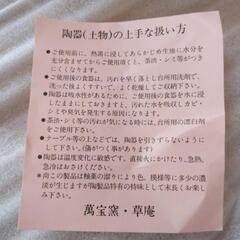 陶器(土物)の上手な扱い方
●ご使用前に、熱湯に浸してあらかじめ生地に水分を
充分含ませてからご使用頂くと、茶渋・シミ等がつき
にくくなります。
●ご使用後の食器は、汚れを早く落とし台所用洗剤で、
洗った後よくすすいで、よく乾燥してご収納下さい。
●陶器は吸水性があるために、ご使用後の食器を水に浸
したままにされますと、汚れた水を吸収しカビ・シ
ミや臭気を発生させる原因となります。
●茶渋・シミ等の汚れが気になる時は、台所用の漂白剤
をご使用下さい。
●テーブル等の上などでは、陶器を引きずらないように
して下さい。(傷がつく事があります)
●陶器は温度変化に敏感です。直接火にかけたり、急熱、
急冷はおさけください。
※尚この製品は釉薬の溜りにより、色、模様等に多少の濃
淡が生じますが陶製品特有の持味として末長くお楽し
み下さい。
萬宝窯・草庵